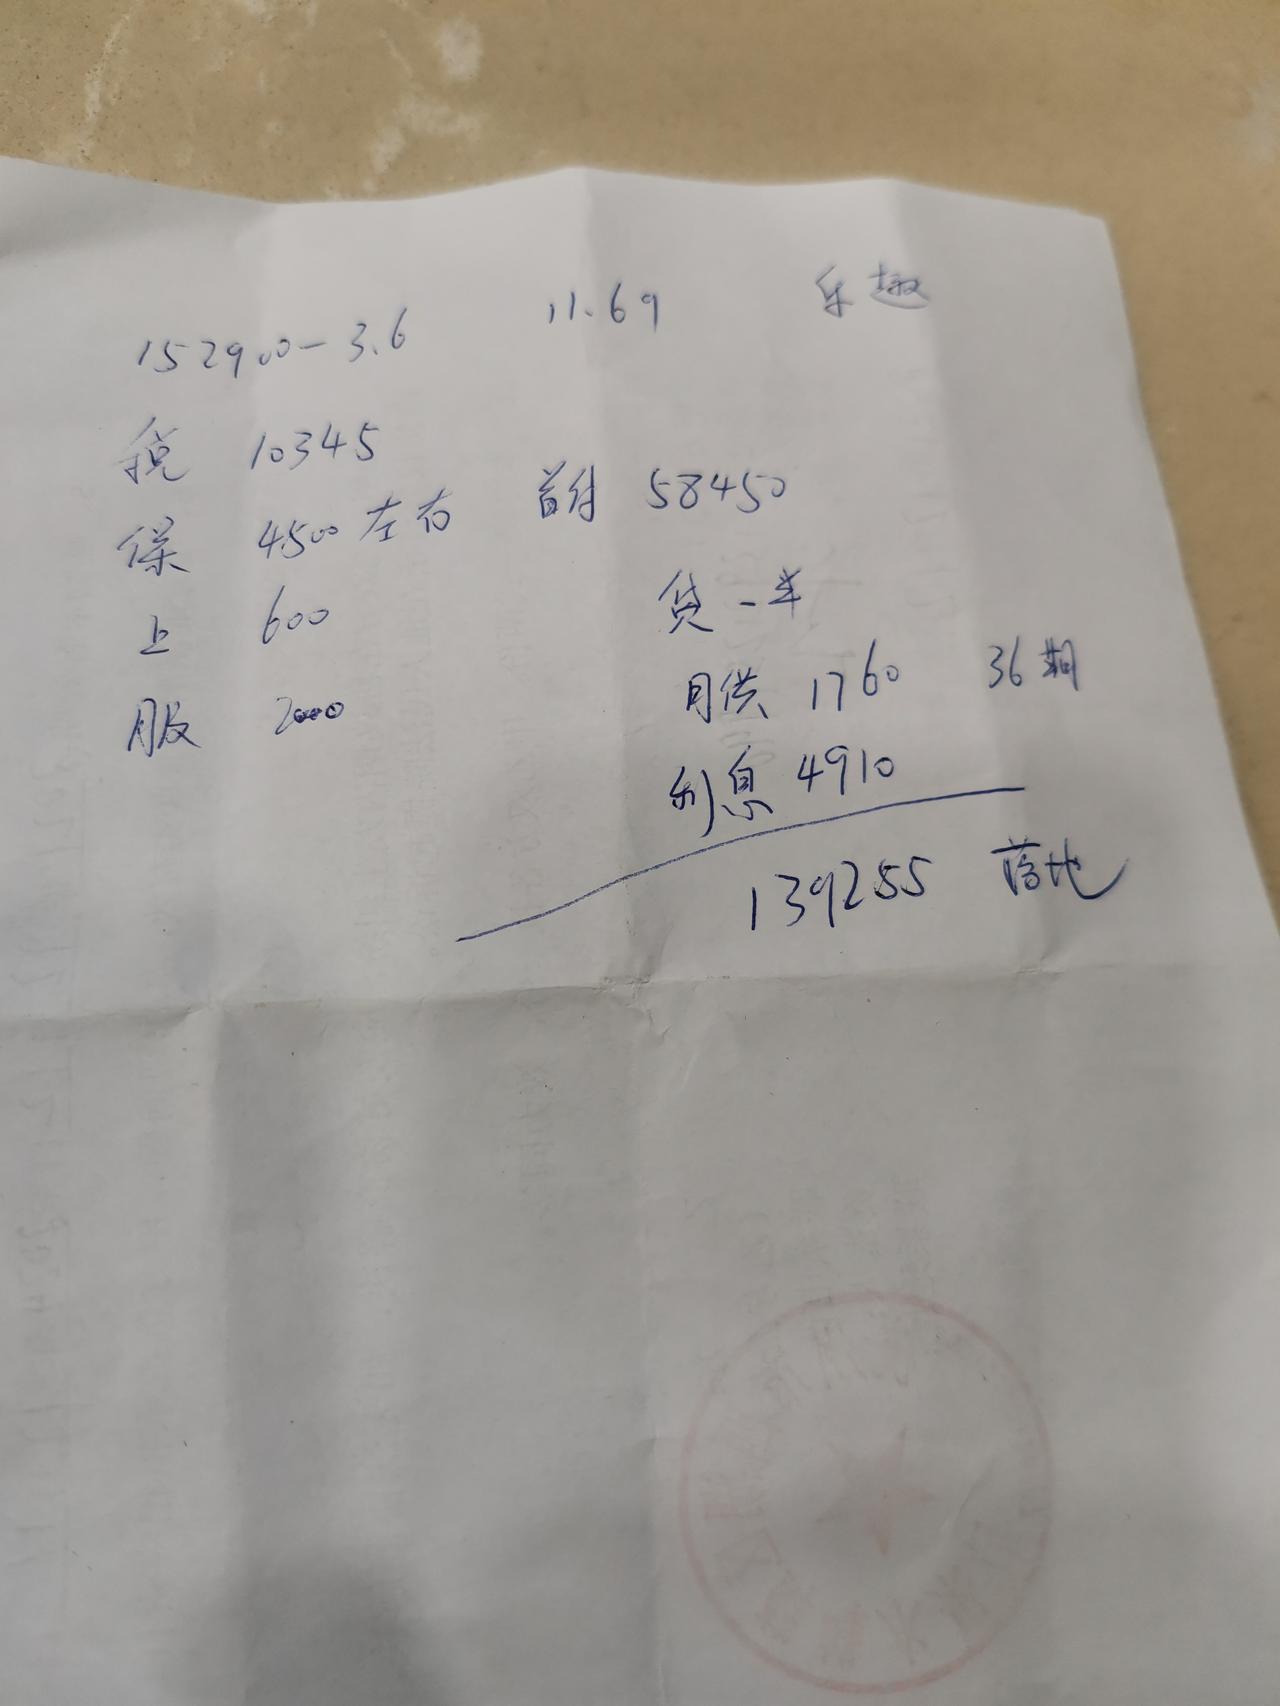 152900-3.6 11.69 乐趣
税 10345
保 4500左右 首付 58450
上 600 贷一半
服 2000 月供 1760 36期
利息 4910
139255 落地